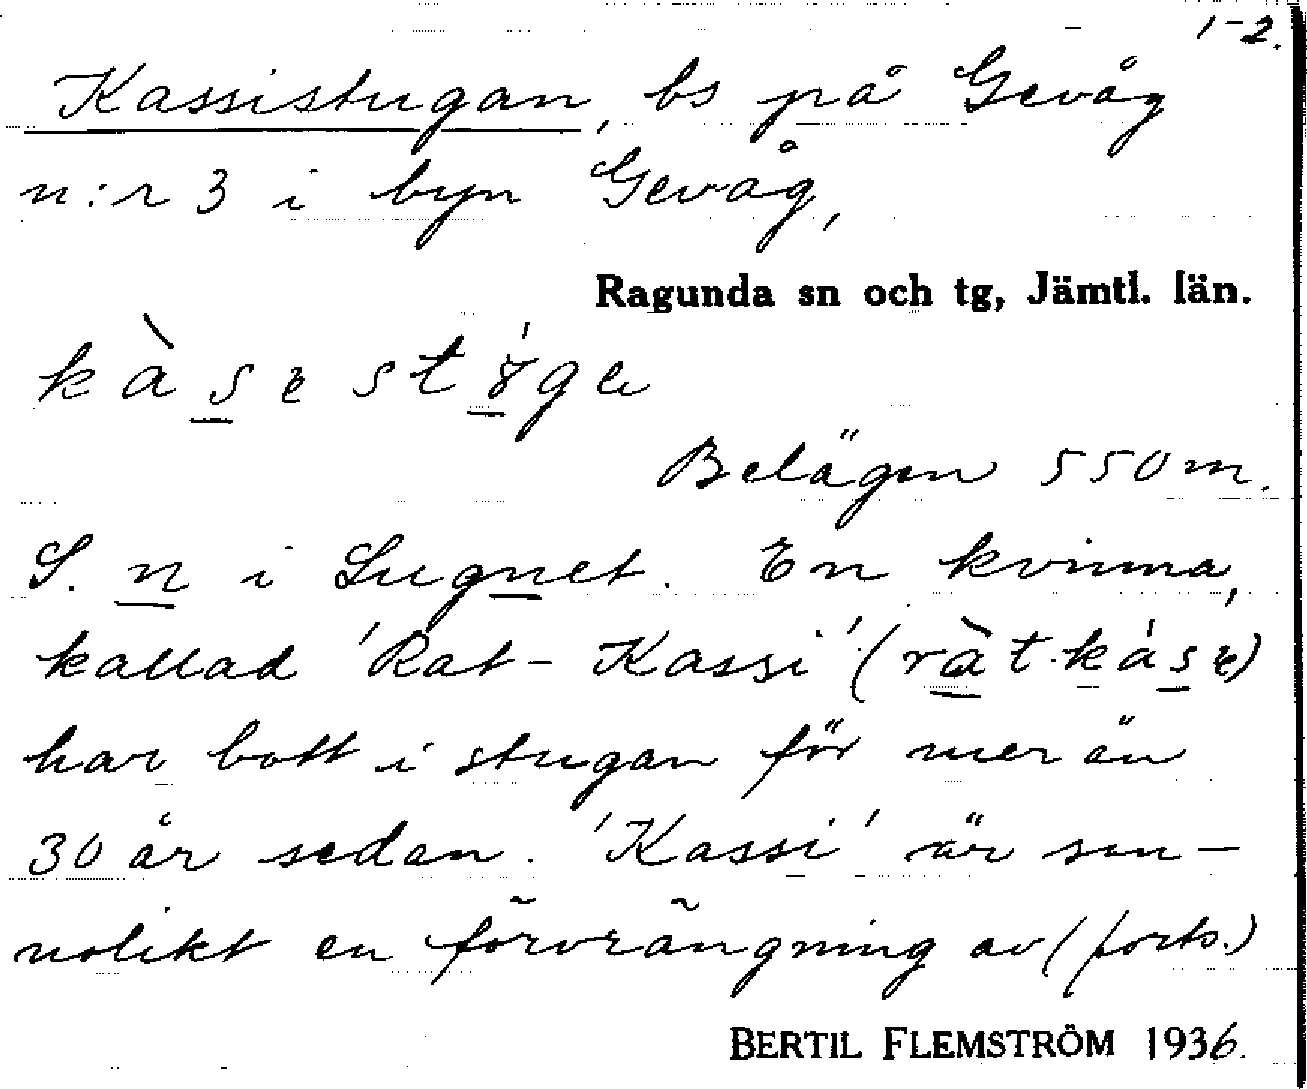 1-2.
Kassistugan, bs på Gevåg
n:r 3 i byn Gevåg,
Ragunda sn och tg, Jämtl. län.
Belägen 550 m.
S. n i Lugnet. En kvinna,
kallad 'Rat-Kassi' (
har bott i stugan för mer än
30 år sedan. 'Kassi' är san-
nolikt en förvrängning av (forts.)
BERTIL FLEMSTRÖM 1936.